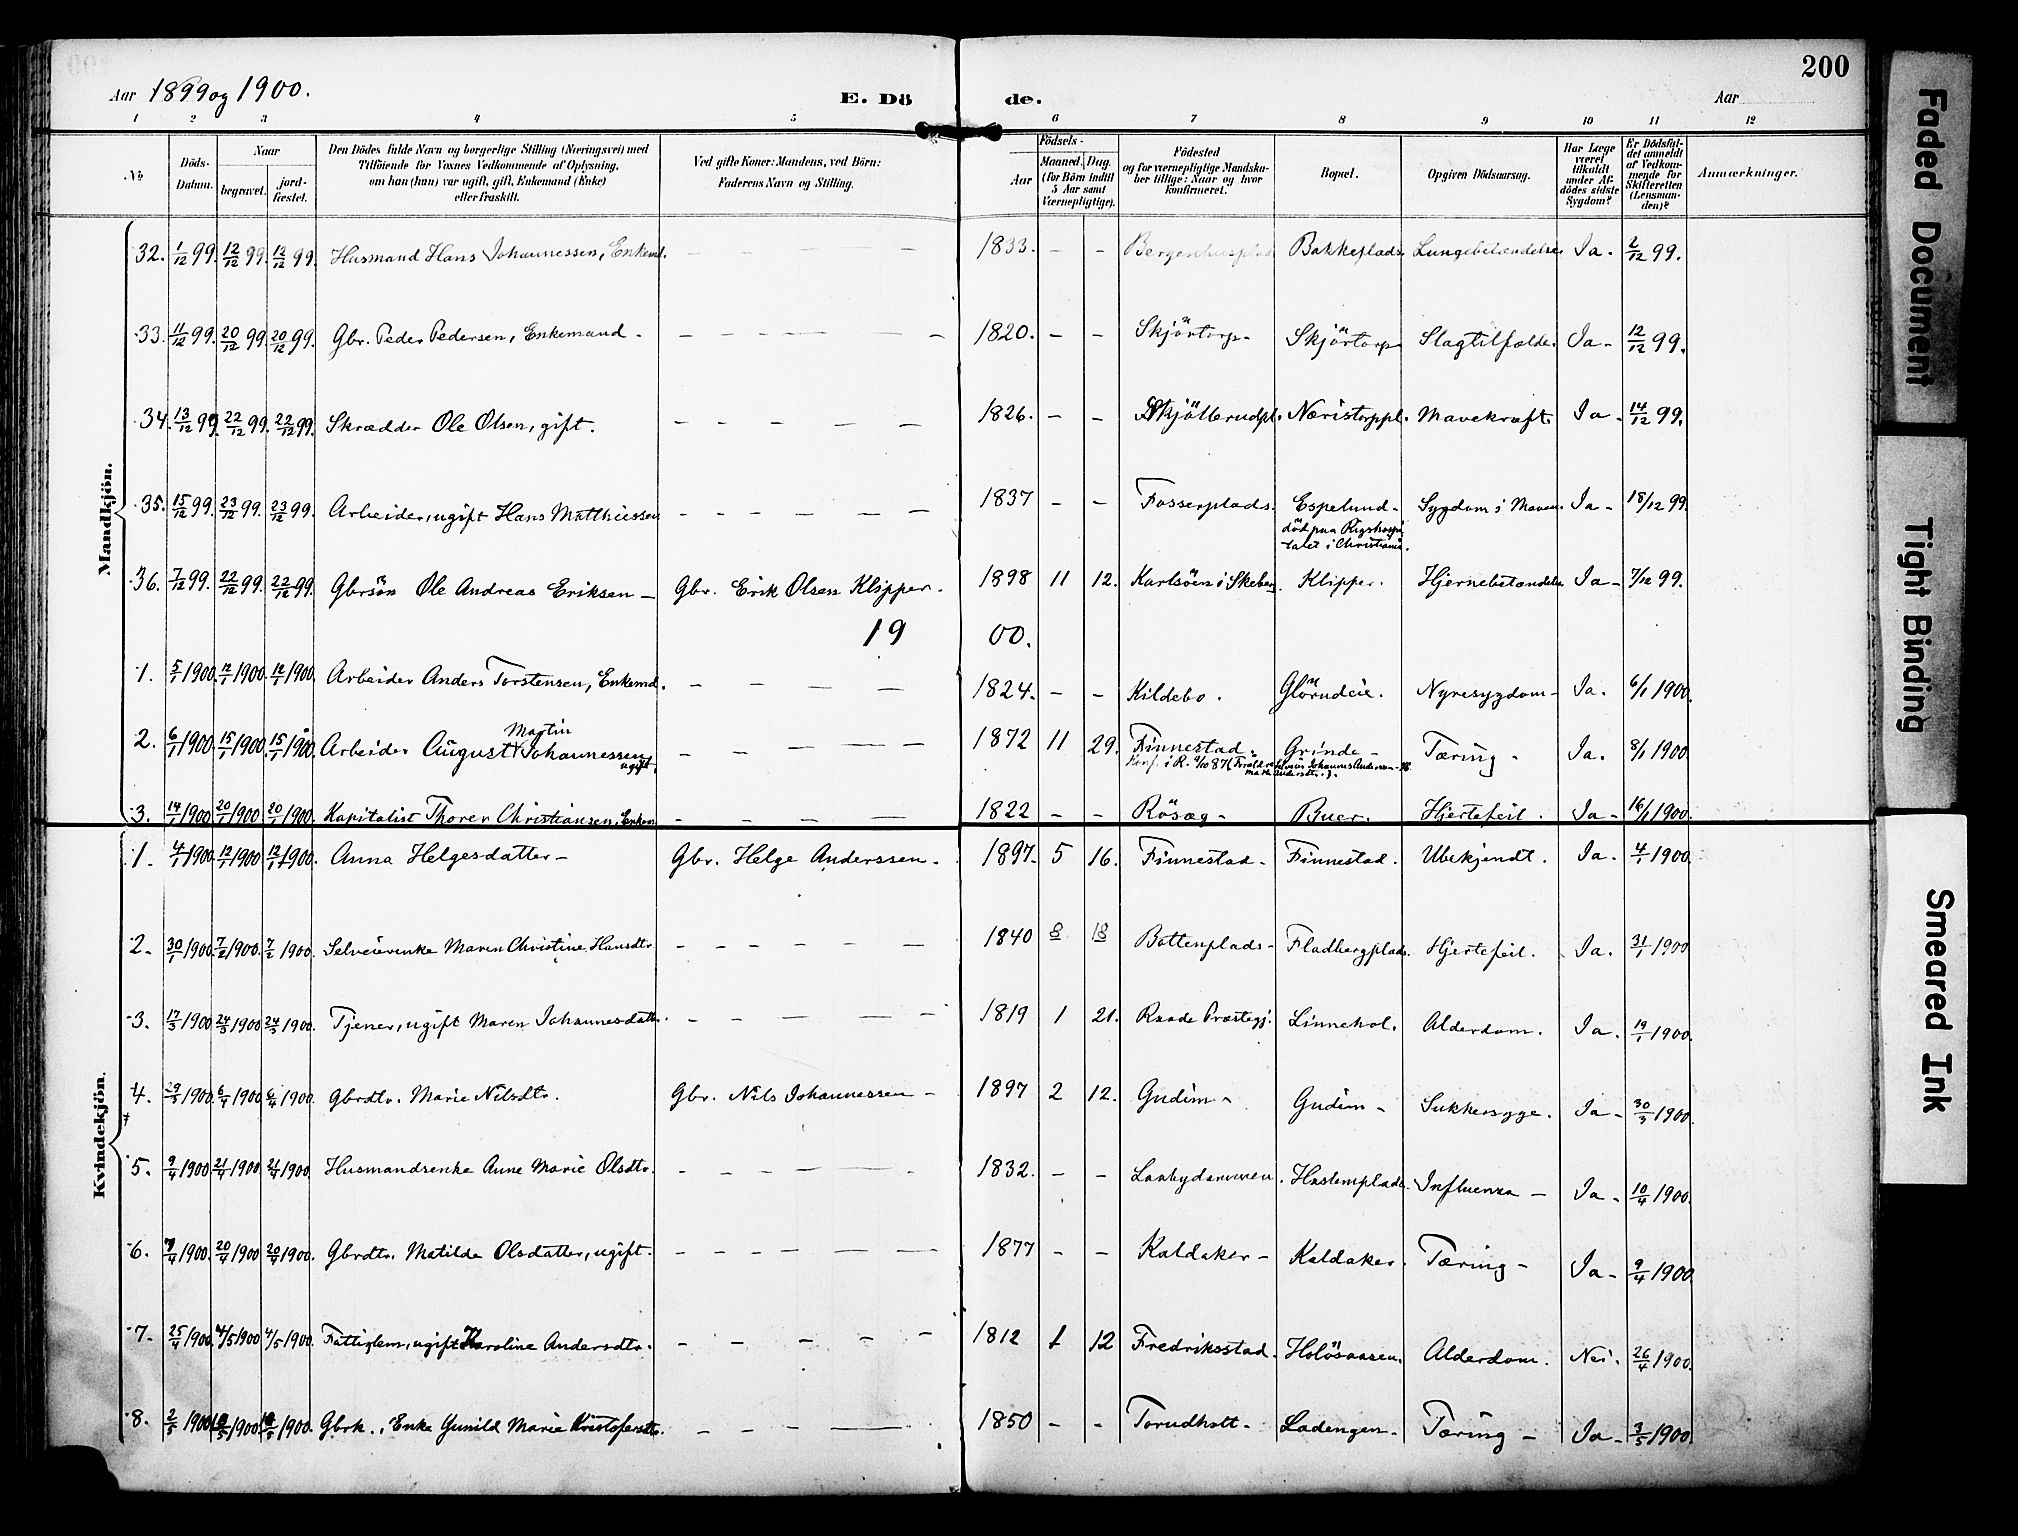 200
Aar 1899 og 1900. E. Dö de. Aar
1 2 3 4 5 6 7 8 9 10 11 12
№ Döds-Datum. Naar begravet. jord-fæstet. Den Dödes fulde Navn og borgerlige Stilling (Næringsvei) med Tilföiende for Voxnes Vedkommende af Oplysning, om han (hun) var ugift, gift, Enkemand (Enke) eller fraskilt. Ved gifte Koner: Mandens, ved Börn: Faderens Navn og Stilling. Födsels- Aar Maaned. Dag. (for Börn indtil 5 Aar samt Værnepligtige). Födested og for værnepligtige Mandskaber tillige: Naar og hvor konfirmeret. Bopæl. Opgiven Dödsaarsag. Har Læge været tilkaldt under Afdödes sidste Sygdom? Er Dödsfaldet anmeldt af Vedkommende for Skifteretten (Lensmanden)? Anmærkninger.
Mandkjön.
32. 1/12 99. 12/12 99. 12/12 99. Husmand Hans Johannessen, Enkemd. – – – – 1833. – – Bakkeplads. Lungebetændelse. Ja. 2/12 99.
33. 11/12 99. 20/12 99. 20/12 99. Gbr. Peder Pedersen, Enkemand – – – – – – 1820. – – Skjörtorp – Skjörtorp Slagtilfælde. Ja – 12/12 99.
34. 13/12 99. 22/12 99. 22/12 99. Skrædder Ole Olsen, gift. – – – – – 1826. – – Næristorppl. Mavekræft. Ja – 14/12 99.
35. 15/12 99. 23/12 99. 23/12 99. Arbeider, ugift Hans Matthiessen – – – – – 1837 – – Fosserplads. Espelund – Sygdom i Maven. Ja – 18/12 99.
död paa Rigshospitalet i Christiania.
36. 7/12 99. 22/12 99. 22/12 99. Gbrsön Ole Andreas Eriksen – Gbr. Erik Olsen Klipper. 1898 11 12. Karlsöen i Klipper. Hjernebetændelse Ja – 7/12 99.
1900.
1. 5/1 1900. 12/1 1900. 12/1 1900. Arbeider Anders Torstensen, Enkemd. – – – – 1824. – – Kildebo. Nyresygdom – Ja. 6/1 1900.
2. 6/1 1900. 15/1 1900. 15/1 1900. Arbeider August Martin Johannessen ugift. – – – – 1872 11 29. Finnestad. Grinde – Tæring – Ja. 8/1 1900.
3. 14/1 1900. 20/1 1900 20/1 1900. Kapitalist Thorer Christiansen, Enkem. – – – – 1822 – – Rösæg – Buer. Hjertefeil. Ja – 16/1 1900.
Kvindekjön.
1. 4/1 1900. 12/1 1900 12/1 1900. Anna Helgesdatter – Gbr. Helge Anderssen. 1897. 5 16. Finnestad – Finnestad. Ubekjendt. Ja. 4/1 1900.
2. 30/1 1900. 7/2 1900. 7/2 1900. Selveierenke Maren Christine Hansdtr – – – – – 1840 8 18 Bottenplads – Fladbergplads. Hjertefeil. Ja. 31/1 1900
3. 17/3 1900 24/3 1900 24/3 1900. Tjener, ugift Maren Johannesdatter. – – – – – 1819 1 21. Raade Præstegj. Linnehol. Alderdom. Ja. 19/1 1900.
4. 29/3 1900. 6/4 1900 6/4 1900. Gbrdtr. Marie Nilsdtr. Gbr. Nils Johannessen – 1897 2 12. Gudim – Gudim – Sukkersyge. Ja – 30/3 1900.
5. 9/4 1900 21/4 1900 21/4 1900. Husmandsenke Anne Marie Olsdtr. – – – – – 1832. – – Haslemplads. Influenza – Ja – 10/4 1900.
6. 7/4 1900. 20/4 1900 20/4 1900. Gbrdtr. Matilde Olsdatter, ugift. – – – – – 1877 – – Kaldaker – Kaldaker. Tæring – Ja – 9/4 1900.
7. 25/4 1900. 4/5 1900 4/5 1900. Fattiglem, ugift Karoline Andersdtr. – – – – – 1812 1 12 Fredriksstad. Holösaasen. Alderdom. Nei. 26/4 1900.
8. 2/5 1900 1900 1900. Gbrk., Enke Gunild Marie Kristofersdtr. – – – – 1850 – – Torudholt – Ladengen – Tæring – Ja – 3/5 1900.
Faded Document
Tight Binding
Smeared Ink